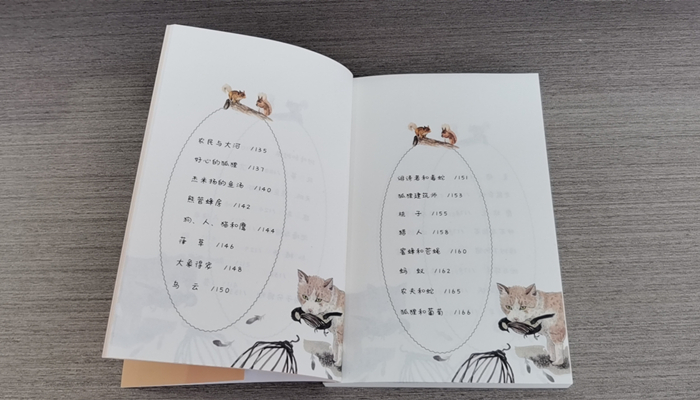 农民与大河 /135
好心的狐狸 /137
杰米扬的鱼汤 /140
熊管蜂房 /142
狗、人、猫和鹰 /144
薄草 /146
大象得宠 /148
乌云 /150
诽谤者和毒蛇 /151
狐狸建筑师 /153
/155
猎人 /158
蜜蜂和苍蝇 /160
蚂蚁 /162
农夫和蛇 /165
狐狸和葡萄 /166